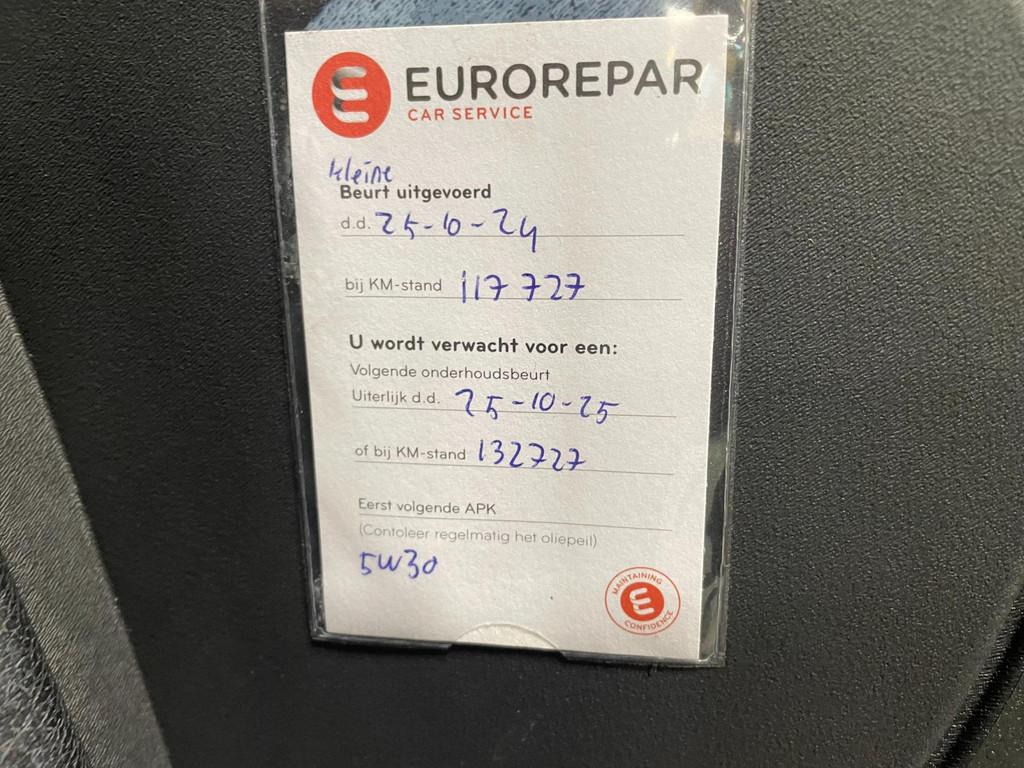 EUROREPAR
CAR SERVICE
kleine
Beurt uitgevoerd
d.d. 25-10-24
bij KM-stand 117 727
U wordt verwacht voor een:
Volgende onderhoudsbeurt
Uiterlijk d.d. 25-10-25
of bij KM-stand 132727
Eerst volgende APK
(Contoleer regelmatig het oliepeil)
5W30
MAINTAINING
CONFIDENCE